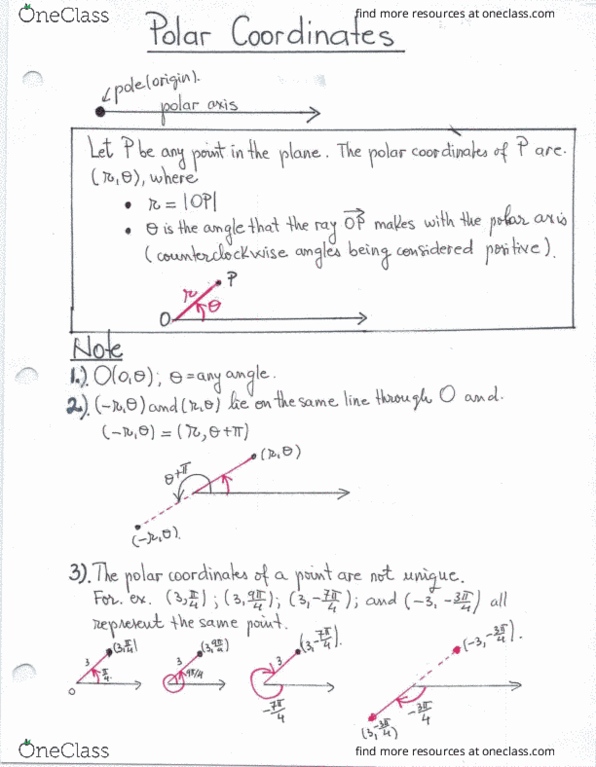 OneClass
find more resources at oneclass.com
Polar Coordinates
pole(origin).
polar axis
Let P be any point in the plane. The polar coordinates of P are.
(r,θ), where
• r = |OP|
• θ is the angle that the ray OP makes with the polar axis
(counterclockwise angles being considered positive).
P
r
θ
O
Note
1.). O(0,θ); θ = any angle.
2.). (-r,θ) and (r,θ) lie on the same line through O and.
(-r,θ) = (r, θ+π)
(r,θ)
θ+π
(-r,θ).
3). The polar coordinates of a point are not unique.
For. ex. (3,π/4); (3,9π/4); (3,-7π/4); and (-3,-3π/4) all
represent the same point.
(3,π/4)
3
π/4
O
(3,9π/4)
3
9π/4
(3,-7π/4).
3
-7π/4
(-3,-3π/4).
-3π/4
(3,-3π/4)
OneClass
find more resources at oneclass.com